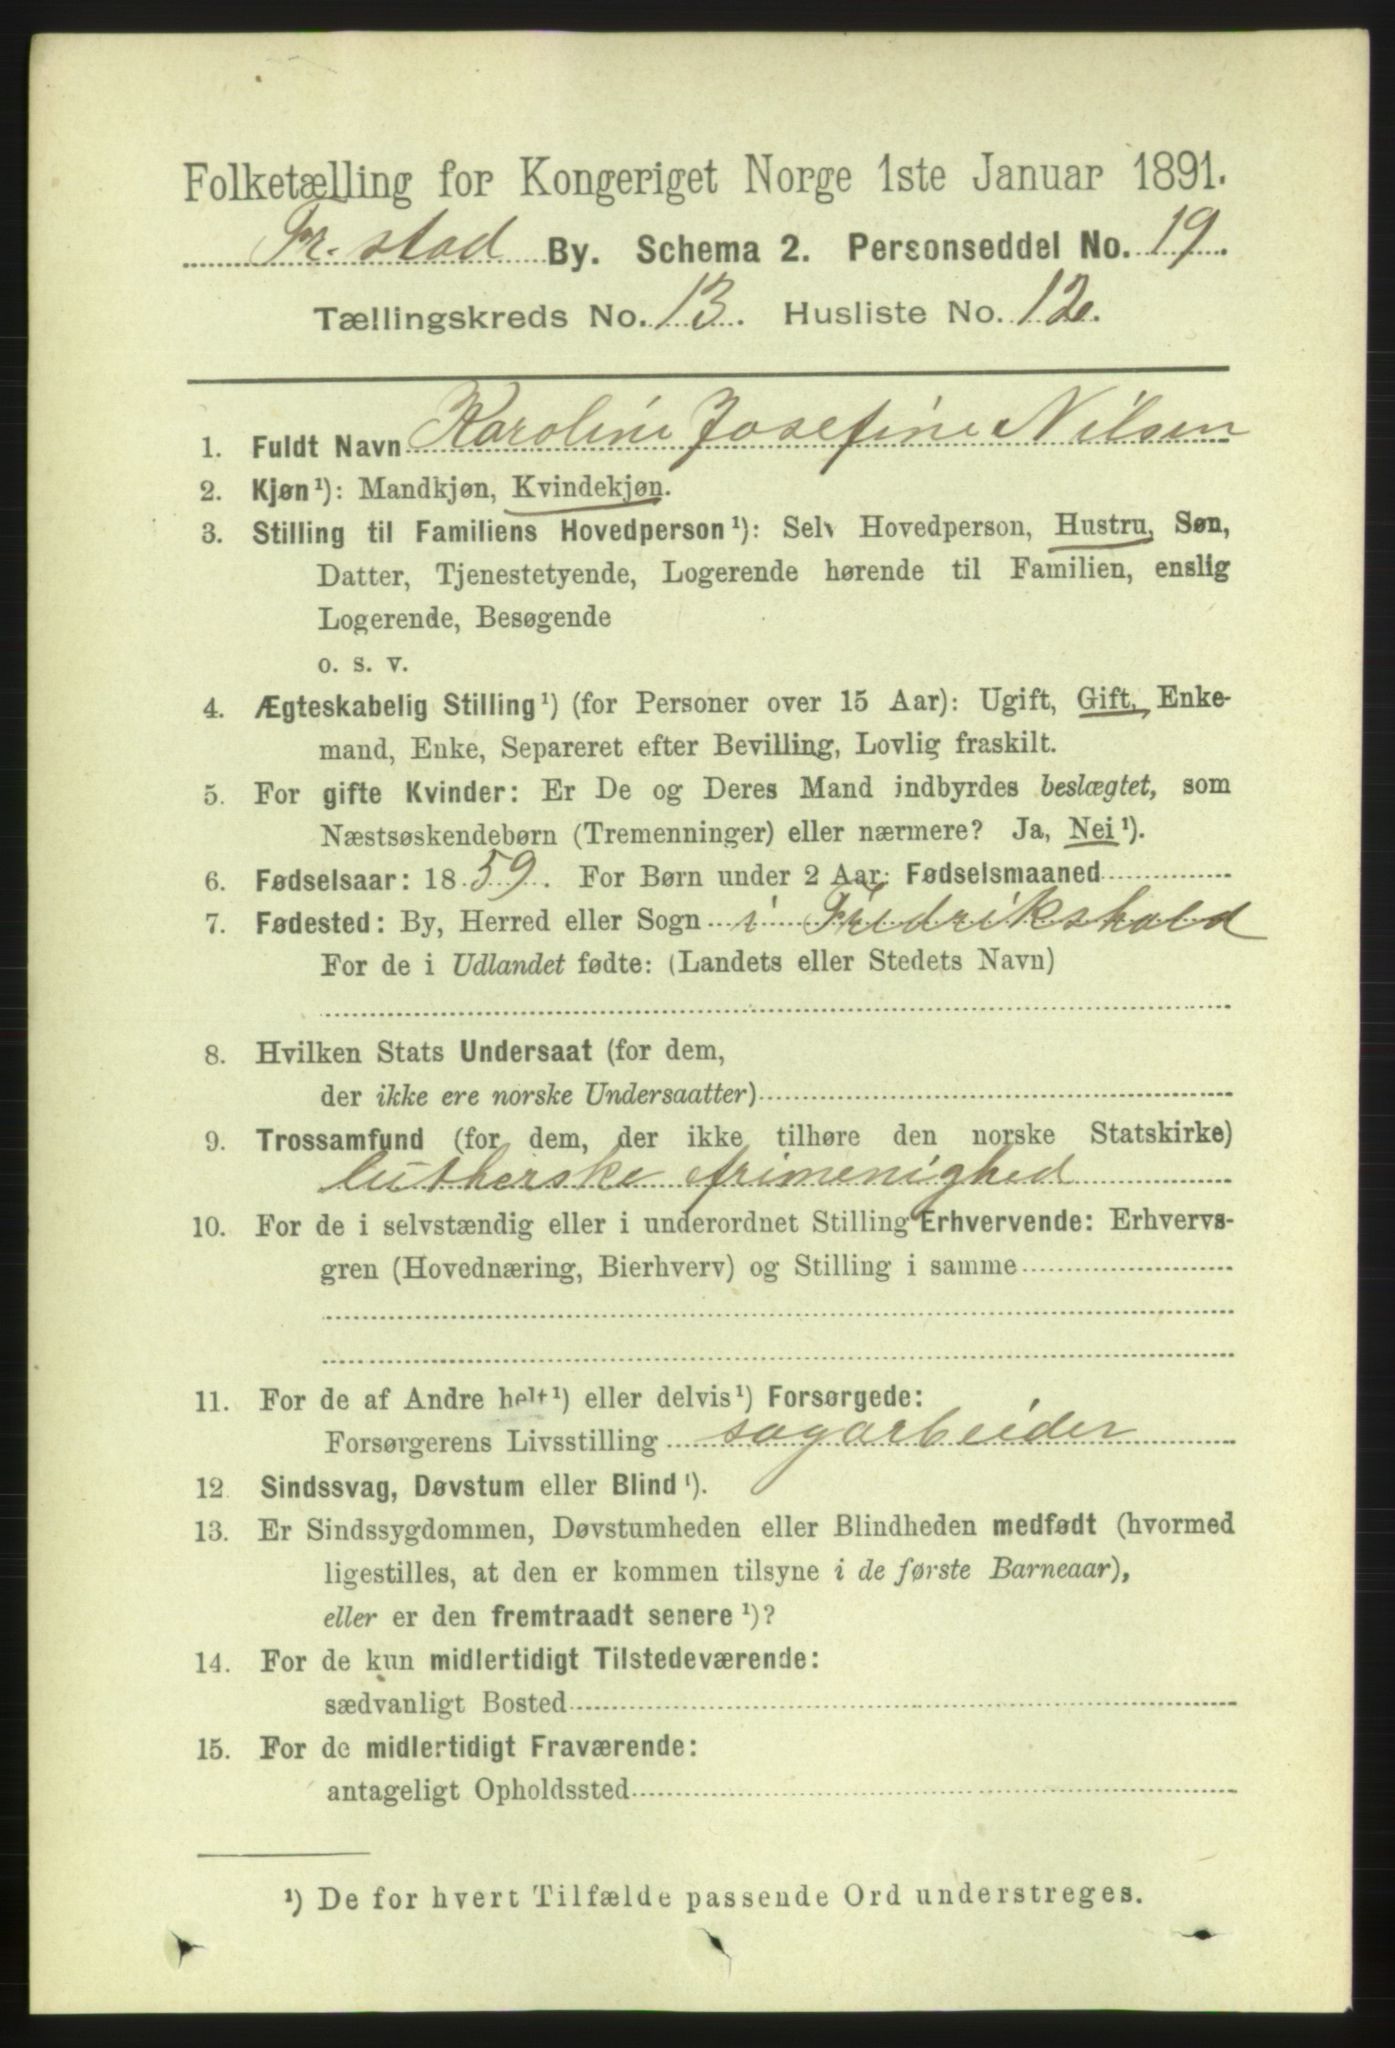 Folketælling for Kongeriget Norge 1ste Januar 1891.
Fr.stad By. Schema 2. Personseddel No. 19.
Tællingskreds No. 13. Husliste No. 12.
1. Fuldt Navn Karoline Josefine Nilsen
2. Kjøn¹): Mandkjøn, Kvindekjøn.
3. Stilling til Familiens Hovedperson¹): Selv Hovedperson, Hustru, Søn,
Datter, Tjenestetyende, Logerende hørende til Familien, enslig
Logerende, Besøgende
o. s. v.
4. Ægteskabelig Stilling¹) (for Personer over 15 Aar): Ugift, Gift, Enke-
mand, Enke, Separeret efter Bevilling, Lovlig fraskilt.
5. For gifte Kvinder: Er De og Deres Mand indbyrdes beslægtet, som
Næstsøskendebørn (Tremenninger) eller nærmere? Ja, Nei¹).
6. Fødselsaar: 1859. For Børn under 2 Aar: Fødselsmaaned
7. Fødested: By, Herred eller Sogn i Fredrikshald
For de i Udlandet fødte: (Landets eller Stedets Navn)
8. Hvilken Stats Undersaat (for dem,
der ikke ere norske Undersaatter)
9. Trossamfund (for dem, der ikke tilhøre den norske Statskirke)
lutherske frimenighed
10. For de i selvstændig eller i underordnet Stilling Erhvervende: Erhvervs-
gren (Hovednæring, Bierhverv) og Stilling i samme
11. For de af Andre helt¹) eller delvis¹) Forsørgede:
Forsørgerens Livsstilling sagarbeider
12. Sindssvag, Døvstum eller Blind¹).
13. Er Sindssygdommen, Døvstumheden eller Blindheden medfødt (hvormed
ligestilles, at den er kommen tilsyne i de første Barneaar),
eller er den fremtraadt senere¹)?
14. For de kun midlertidigt Tilstedeværende:
sædvanligt Bosted
15. For de midlertidigt Fraværende:
antageligt Opholdssted
¹) De for hvert Tilfælde passende Ord understreges.